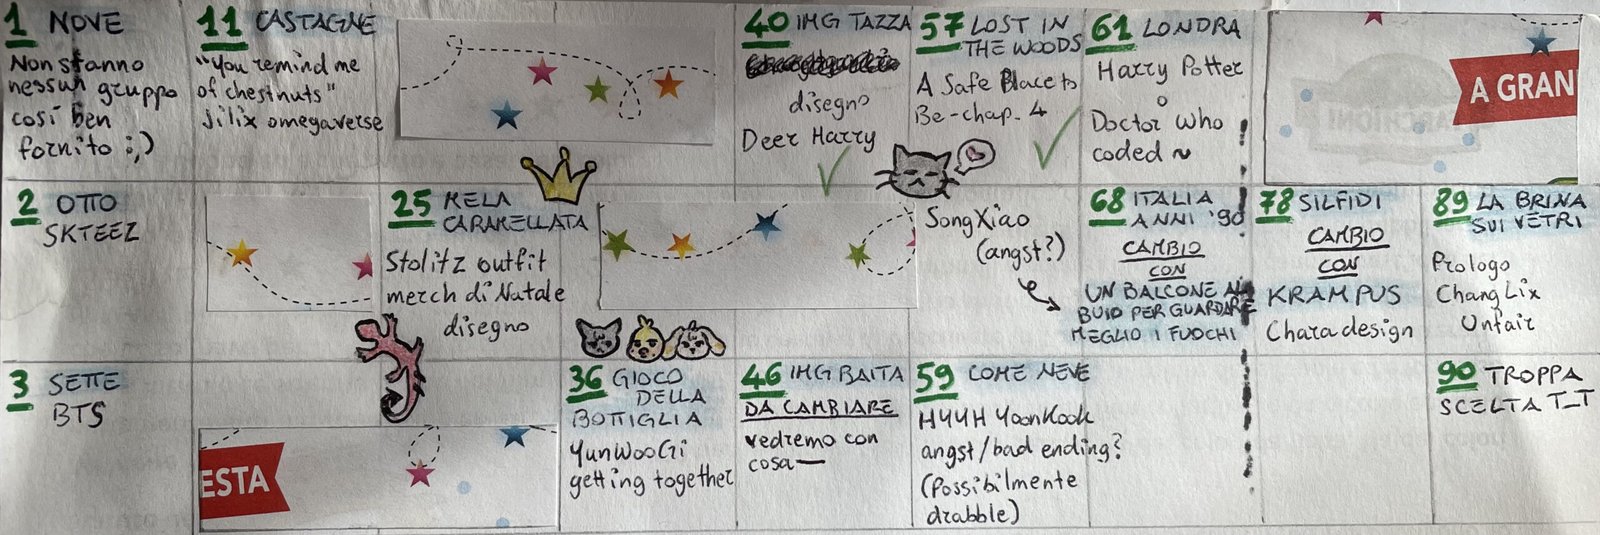 1 NOVE
Non stanno
nessun gruppo
così ben
fornito :,)
11 CASTAGNE
"You remind me
of chestnuts"
Jilix omegaverse
40 IMG TAZZA
disegno
Deer Harry
57 LOST IN
THE WOODS
A Safe Place to
Be - chap. 4
61 LONDRA
Harry Potter
o
Doctor Who
coded ~
A GRAN
2 OTTO
SKTEEZ
25 MELA
CARAMELLATA
Stolitz outfit
merch di Natale
disegno
SongXiao
(angst?)
68 ITALIA
ANNI '90
CAMBIO
CON
UN BALCONE AL
BUIO PER GUARDARE
MEGLIO I FUOCHI
78 SILFIDI
CAMBIO
CON
KRAMPUS
Chara design
89 LA BRINA
SUI VETRI
Prologo
ChangLix
Unfair
3 SETTE
BTS
ESTA
36 GIOCO
DELLA
BOTTIGLIA
YunWooGi
getting together
46 IMG BAITA
DA CAMBIARE
vedremo con
cosa—
59 COME NEVE
HYYH YoonKook
angst/bad ending?
(Possibilmente
drabble)
90 TROPPA
SCELTA T_T